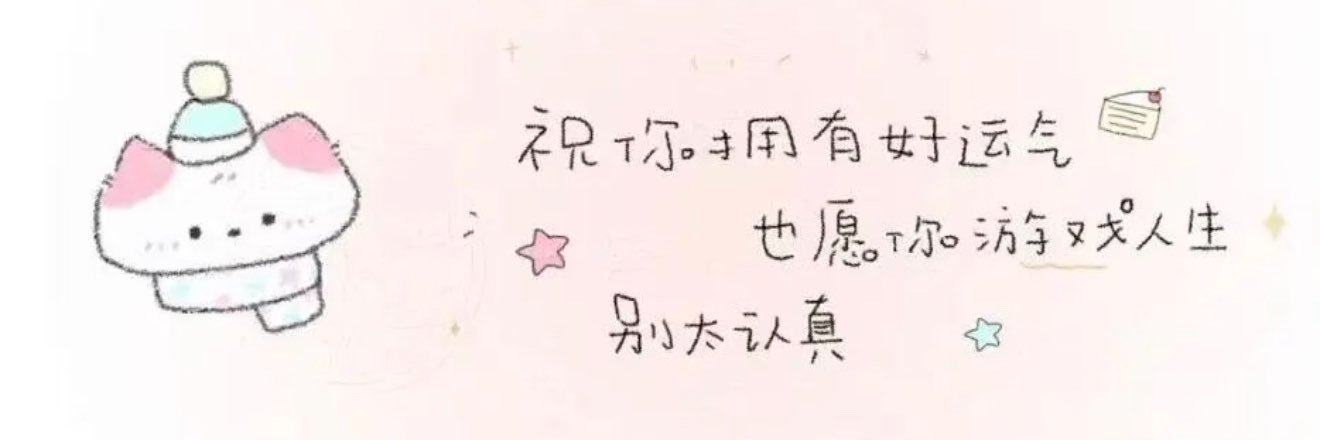 祝你拥有好运气
也愿你游戏人生
别太认真